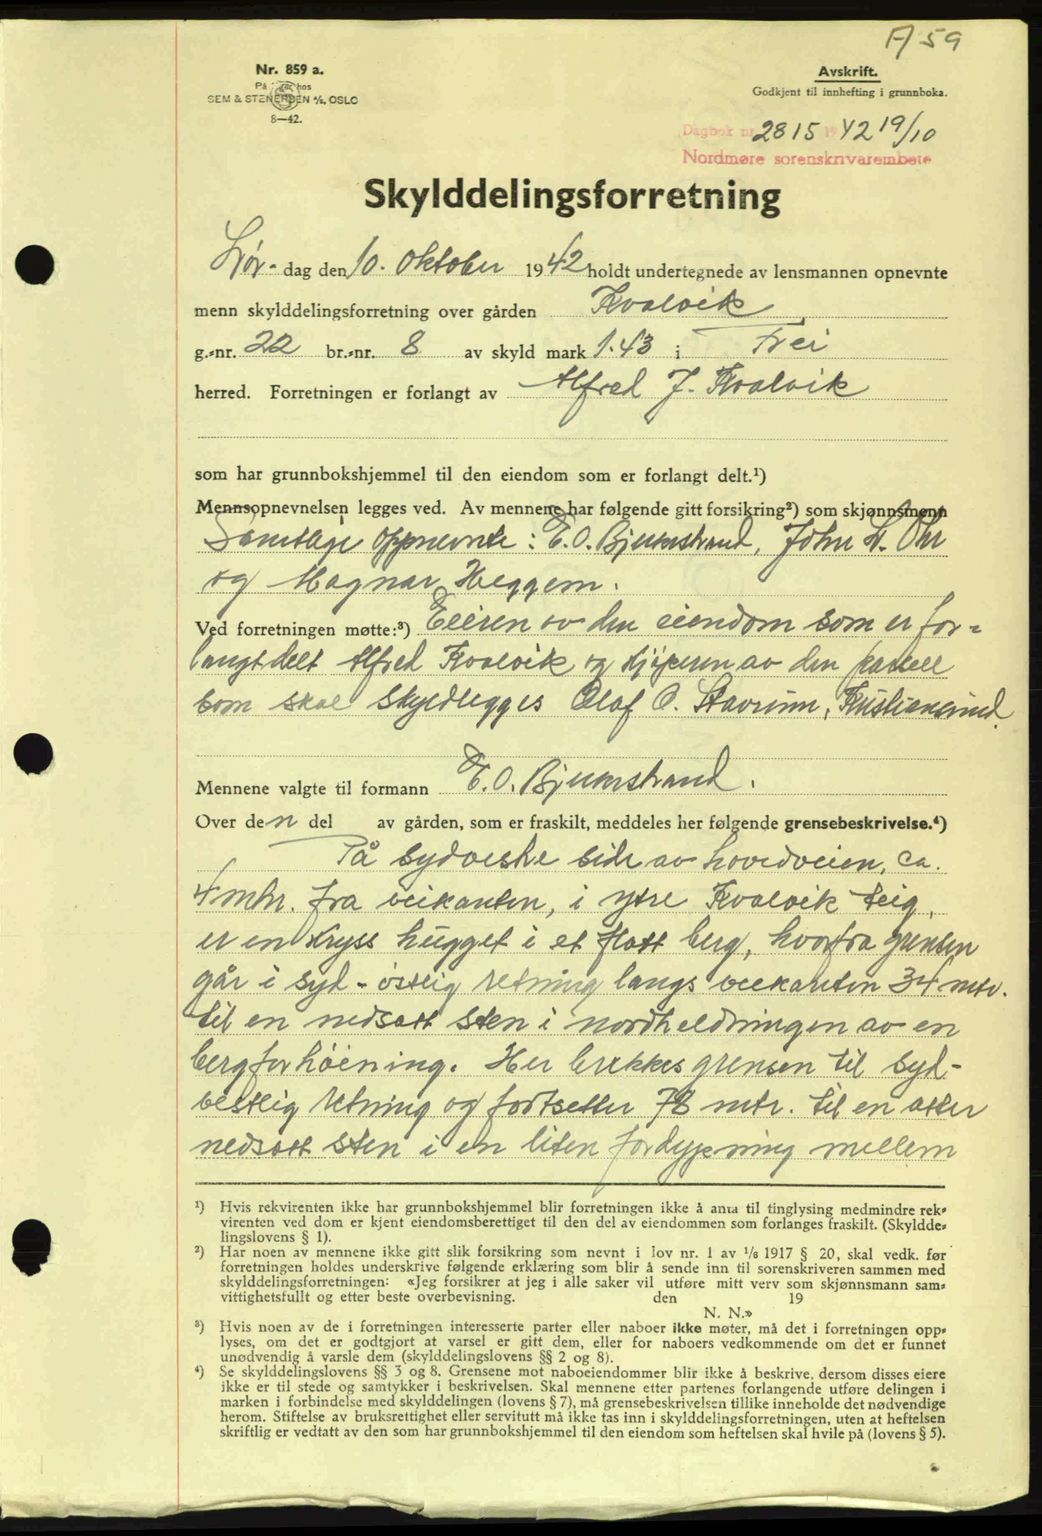 A 59
Nr. 859 a.
På hos
SEM & STENERSEN A/S, OSLO
8—42.
Avskrift.
Godkjent til innhefting i grunnboka.
Dagbok nr. 2815 19 42 19/10
Nordmøre sorenskriverembete
Skylddelingsforretning
Lør- dag den 10. oktober 1942 holdt undertegnede av lensmannen opnevnte
menn skylddelingsforretning over gården Kvalvik
g.-nr. 22 br.-nr. 8 av skyld mark 1.43 i Frei
herred. Forretningen er forlangt av Alfred J. Kvalvik
som har grunnbokshjemmel til den eiendom som er forlangt delt.¹)
Mennsopnevnelsen legges ved. Av mennene har følgende gitt forsikring²) som skjønnsmenn
Samtlige oppnevnte: E.O. Bjerkestrand, John L. Ohr
og Magnar Heggem.
Ved forretningen møtte:³) Eieren av den eiendom som er for-
langt delt Alfred Kvalvik og kjøperen av den parsell
som skal skyldlegges Olaf O. Stavrum, Kristiansund.
Mennene valgte til formann E.O. Bjerkestrand.
Over den del av gården, som er fraskilt, meddeles her følgende grensebeskrivelse.⁴)
På sydvestre side av hovedveien, ca.
4 mtr. fra veikanten, i ytre Kvalvik teig,
er en kryss hugget i et flatt berg, hvorfra grensen
går i syd-østlig retning langs veikanten 34 mtr.
til en nedsatt sten i nordheldningen av en
bergforhöining. Her brekkes grensen til syd-
vestlig retning og fortsetter 78 mtr. til en atter
nedsatt sten i en liten fordypning mellem
¹) Hvis rekvirenten ikke har grunnbokshjemmel blir forretningen ikke å anta til tinglysing medmindre rek-
virenten ved dom er kjent eiendomsberettiget til den del av eiendommen som forlanges fraskilt. (Skyldde-
lingslovens § 1).
²) Har noen av mennene ikke gitt slik forsikring som nevnt i lov nr. 1 av 1/6 1917 § 20, skal vedk. før
forretningen holdes underskrive følgende erklæring som blir å sende inn til sorenskriveren sammen med
skylddelingsforretningen: «Jeg forsikrer at jeg i alle saker vil utføre mitt verv som skjønnsmann sam-
vittighetsfullt og etter beste overbevisning. den 19
N. N.»
³) Hvis noen av de i forretningen interesserte parter eller naboer ikke møter, må det i forretningen opp-
lyses, om det er godtgjort at varsel er gitt dem, eller for naboers vedkommende om det er funnet
unødvendig å varsle dem (skylddelingslovens §§ 2 og 8).
⁴) Se skylddelingslovens §§ 3 og 8. Grensene mot naboeiendommer blir ikke å beskrive, dersom disses eiere
ikke er til stede og samtykker i beskrivelsen. Skal mennene etter partenes forlangende utføre delingen i
marken i forbindelse med skylddelingen (lovens § 7), må grensebeskrivelsen tillike inneholde det nødvendige
herom. Stiftelse av bruksrettighet eller servitutt må ikke tas inn i skylddelingsforretningen, uten at heftelsen
skriftlig er vedtatt av den som har grunnbokshjemmel til den eiendom som heftelsen skal hvile på (lovens § 5).